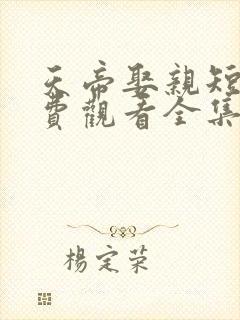 天帝娶親短
費觀看全集
楊定荣